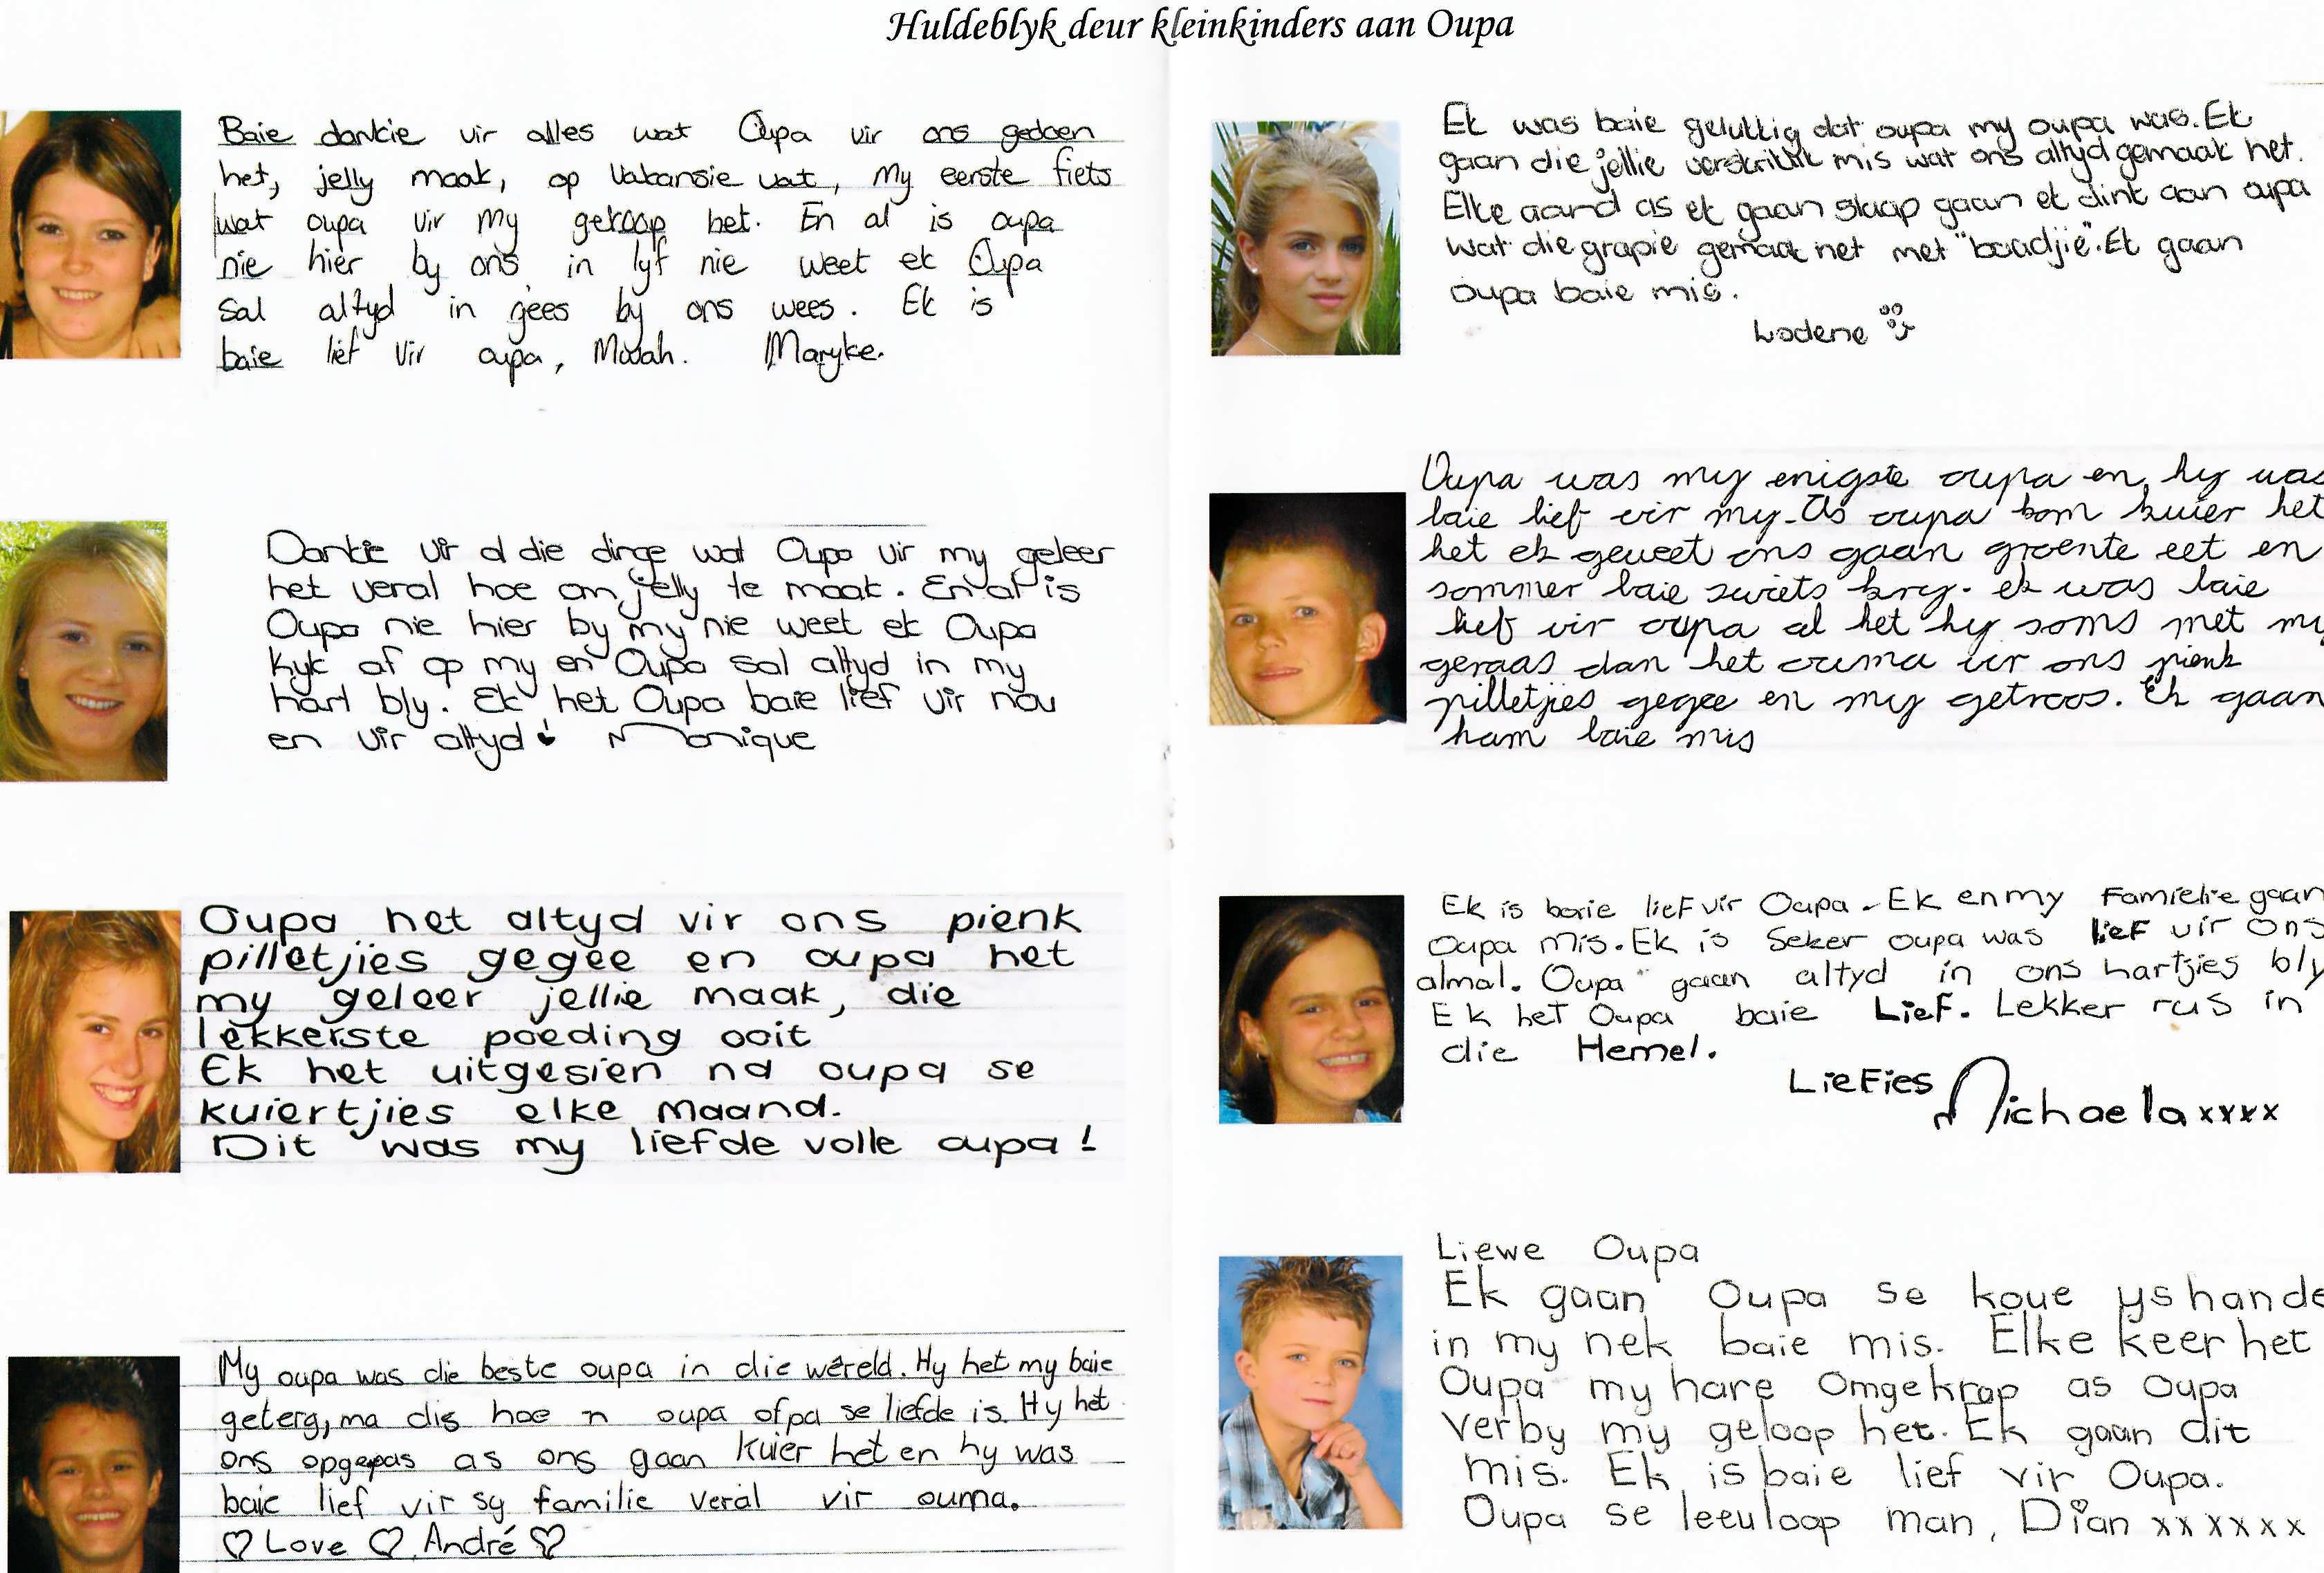 Huldeblyk deur kleinkinders aan Oupa
Baie dankie vir alles wat Oupa vir ons gedoen
het, jelly maak, op vakansie vat, my eerste fiets
wat oupa vir my gekoop het. En al is oupa
nie hier by ons in lyf nie weet ek Oupa
sal altyd in gees by ons wees. Ek is
baie lief vir oupa, Mwah. Maryke.
Dankie vir al die dinge wat Oupa vir my geleer
het veral hoe om jelly te maak. En al is
Oupa nie hier by my nie weet ek Oupa
kyk af op my en Oupa sal altyd in my
hart bly. Ek het Oupa baie lief vir nou
en vir altyd Monique
Oupa het altyd vir ons pienk
pilletjies gegee en oupa het
my geleer jellie maak, die
lekkerste poeding ooit
Ek het uitgesien na oupa se
kuiertjies elke maand.
Dit was my liefde volle oupa!
My oupa was die beste oupa in die wêreld. Hy het my baie
geterg, ma dis hoe 'n oupa of pa se liefde is. Hy het
ons opgepas as ons gaan kuier het en hy was
baie lief vir sy familie veral vir ouma.
♡ Love ♡ André ♡
Ek was baie gelukkig dat oupa my oupa was. Ek
gaan die jellie verskriklik mis wat ons altyd gemaak het.
Elke aand as ek gaan slaap gaan ek dink aan oupa
wat die grapie gemaak het met "baadjie". Ek gaan
oupa baie mis.
Lodene
Oupa was my enigste oupa en hy was
baie lief vir my. As oupa kom kuier het
het ek geweet ons gaan groente eet en
sommer baie swiets kry. ek was baie
lief vir oupa al het hy soms met my
geraas dan het ouma vir ons pienk
pilletjies gegee en my getroos. Ek gaan
hom baie mis
Ek is baie lief vir Oupa. Ek en my Famielie gaan
Oupa mis. Ek is seker oupa was lief vir ons
almal. Oupa gaan altyd in ons hartjies bly
Ek het Oupa baie Lief. Lekker rus in
die Hemel.
Liefies
Michaela xxxx
Liewe Oupa
Ek gaan Oupa se koue yshande
in my nek baie mis. Elke keer het
Oupa my hare omgekrap as Oupa
verby my geloop het. Ek gaan dit
mis. Ek is baie lief vir Oupa.
Oupa se leeuloop man, Dian xxxxxx